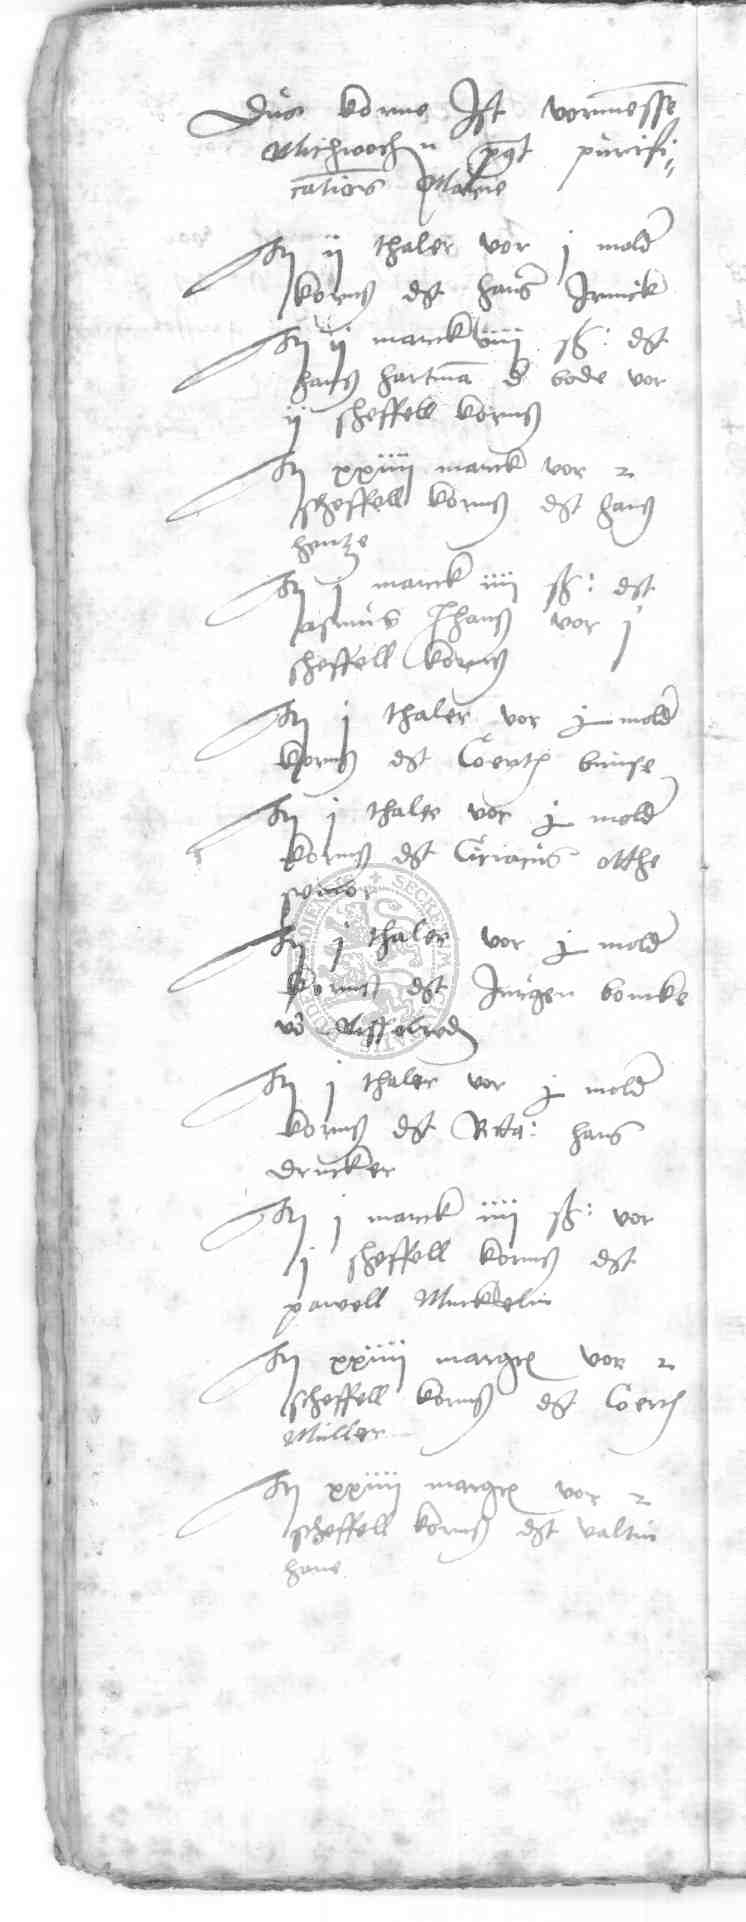 Düs korne Ist vormesse
Mithwoch n pꝰt pürifi„
cationis Marie
It ij thaler vor j mold
korns dt hans Irmick
It ij marck viiij ß: dt
hans hartma d bode vor
ij sheffell korns
It xxiiij marck vor 2
scheffell korns dt hans
hentze
It j marck iiij ß: dt
asmus hans vor j
sheffell korns
It j thaler vor j mold
korns dt Coert bunse
It j thaler vor j mold
korns dt Ciriacus otthe
It j thaler vor j mold
korns dt Jurgen bomke
vo
It j thaler vor j mold
korns dt hans
drucker
It j marck iiij ß: vor
j sheffell korns dt
pawell
It xxiiij margr vor 2
scheffell korns dt Coert
Müller
It xxiiij margr vor 2
scheffell korns dt valtin
hane
SECRET